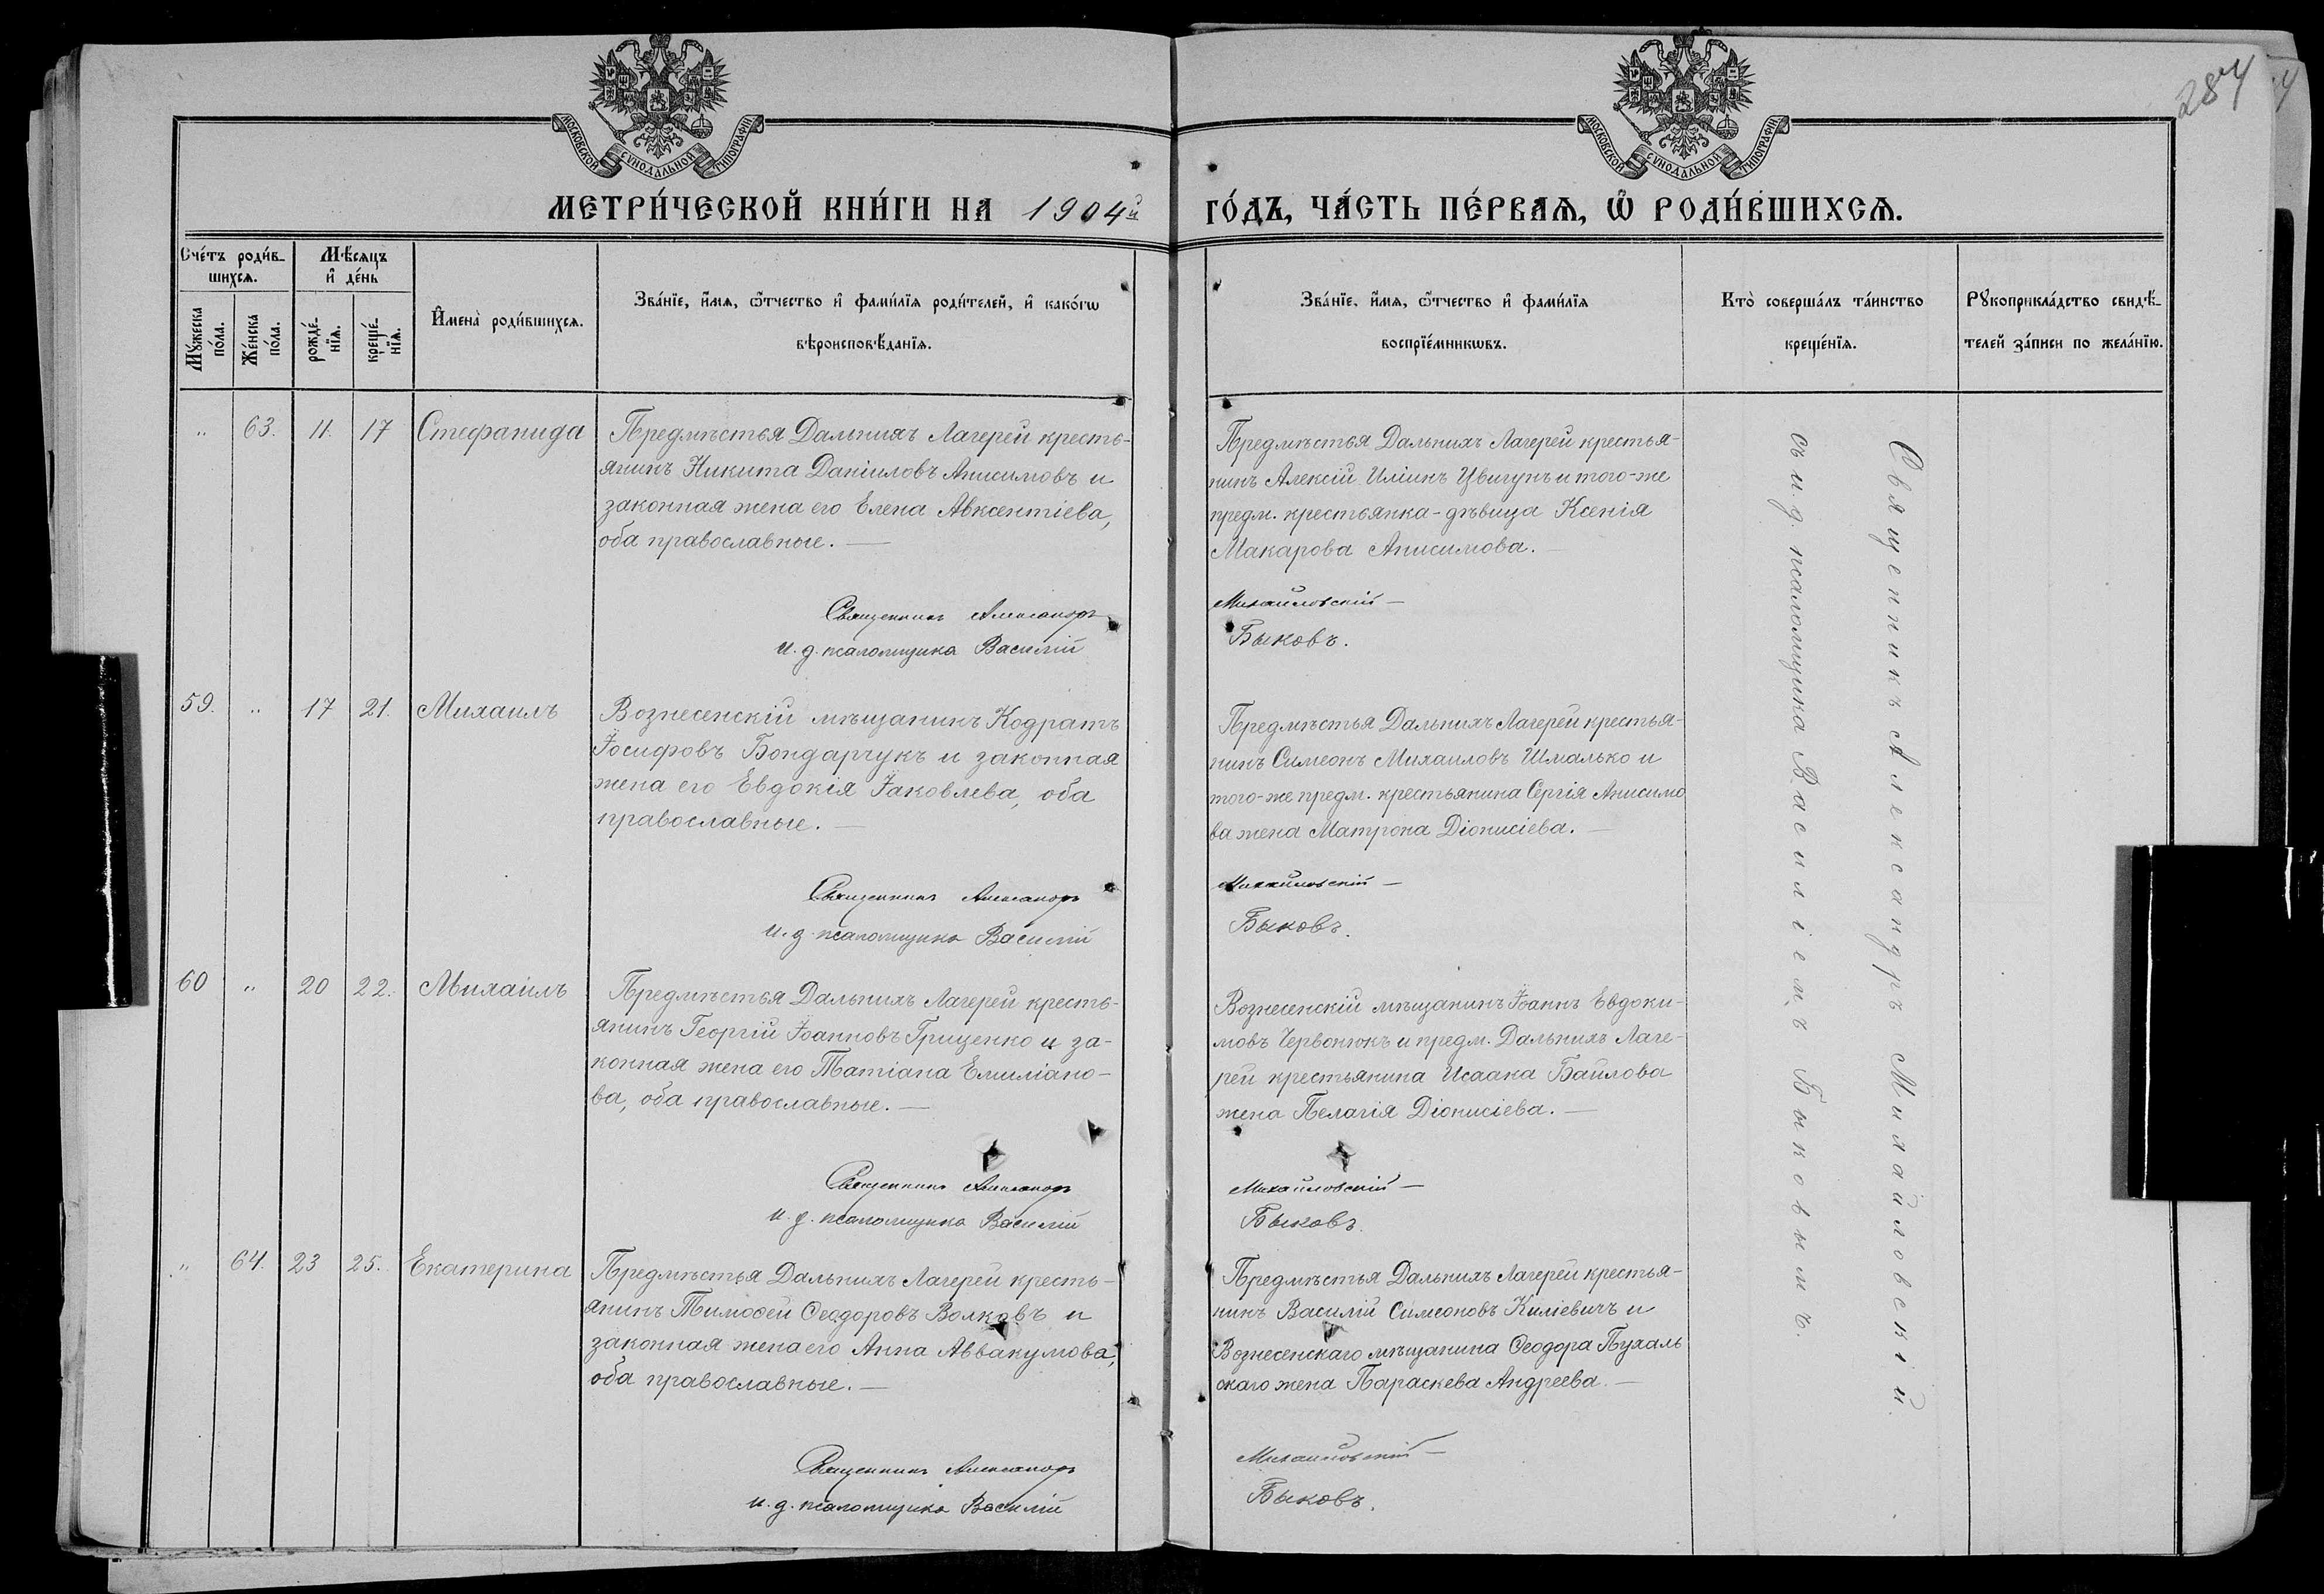 287
МОСКОВСКОЙ СУНОДАЛЬНОЙ ТИПОГРАФІИ
МОСКОВСКОЙ СУНОДАЛЬНОЙ ТИПОГРАФІИ
МЕТРИ́ЧЕСКОЙ КНИ́ГИ НА 1904й ГО́ДЪ, ЧА́СТЬ ПЕ́РВАѦ, Ѡ РОДИ́ВШИХСѦ.
Сче́тъ роди́в-
шихсѧ.
Мꙋ́жеска
по́ла.
Же́нска
по́ла.
Мѣ́сѧцъ
и҆ де́нь
рожде́-
нїѧ.
креще́-
нїѧ.
И҆мена̀ роди́вшихсѧ.
Зва́нїе, и҆́мѧ, ѻ҆́тчество и҆ фами́лїѧ роди́телей, и҆ како́гѡ
вѣроисповѣ́данїѧ.
Зва́нїе, и҆́мѧ, ѻ҆́тчество и҆ фами́лїѧ
воспрїе́мникѡвъ.
Кто̀ соверша́лъ та́инство
креще́нїѧ.
Рꙋкоприкла́дство свидѣ́-
телей за́писи по жела́нїю.
" 63. 11. 17 Стефанида
Предмѣстья Дальнихъ Лагерей кресть-
янинъ Никита Даніиловъ Анисимовъ и
законная жена его Елена Авксентіева,
оба православные. —
Священникъ Александръ
И. д. псаломщика Василій
Предмѣстья Дальнихъ Лагерей крестья-
нинъ Алексій Иліинъ Цвигунъ и того-же
предм. крестьянка-дѣвица Ксенія
Макарова Анисимова. —
Михайловскій —
Быковъ.
59. " 17 21. Михаилъ
Вознесенскій мѣщанинъ Кодратъ
Іосифовъ Бондарчукъ и законная
жена его Евдокія Іаковлева, оба
православные. —
Священникъ Александръ
И. д. псаломщика Василій
Предмѣстья Дальнихъ Лагерей крестья-
нинъ Симеонъ Михаиловъ Шмалько и
того-же предм. крестьянина Сергія Анисимо
ва жена Матрона Діонисіева. —
Михайловскій —
Быковъ.
60 " 20 22. Михаилъ
Предмѣстья Дальнихъ Лагерей кресть-
янинъ Георгій Іоанновъ Грищенко и за-
конная жена его Татіана Емиліано-
ва, оба православные. —
Священникъ Александръ
И. д. псаломщика Василій
Вознесенскій мѣщанинъ Іоаннъ Евдоки-
мовъ Червонюкъ и предм. Дальнихъ Лаге-
рей крестьянина Исаака Баилова
жена Пелагія Діонисіева. —
Михайловскій —
Быковъ.
" 64. 23 25. Екатерина
Предмѣстья Дальнихъ Лагерей кресть-
янинъ Тимоѳей Ѳеодоровъ Волковъ и
законная жена его Анна Аввакумова,
оба православные. —
Священникъ Александръ
и. д. псаломщика Василій
Предмѣстья Дальнихъ Лагерей крестья-
нинъ Василій Симеоновъ Киліевичъ и
Вознесенскаго мѣщанина Ѳеодора Пухаль
скаго жена Параскева Андреева. —
Михайловскій —
Быковъ.
Священникъ Александръ Михайловскій
съ и. д. псаломщика Василіемъ Быковымъ.